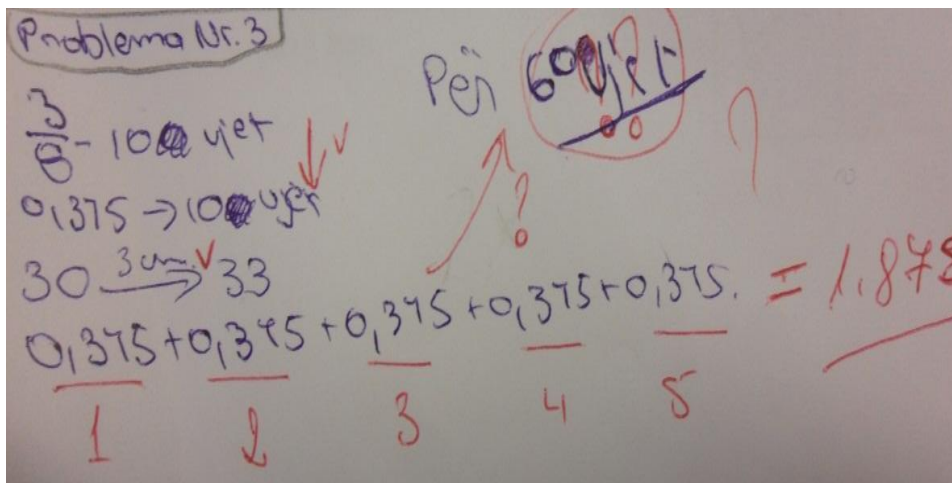 Problema Nr. 3
Për 60 vjet
3/8 - 10 vjet
0,375 → 10 vjet
30 3cm → 33
0,375 + 0,375 + 0,375 + 0,375 + 0,375. = 1.875
1 2 3 4 5